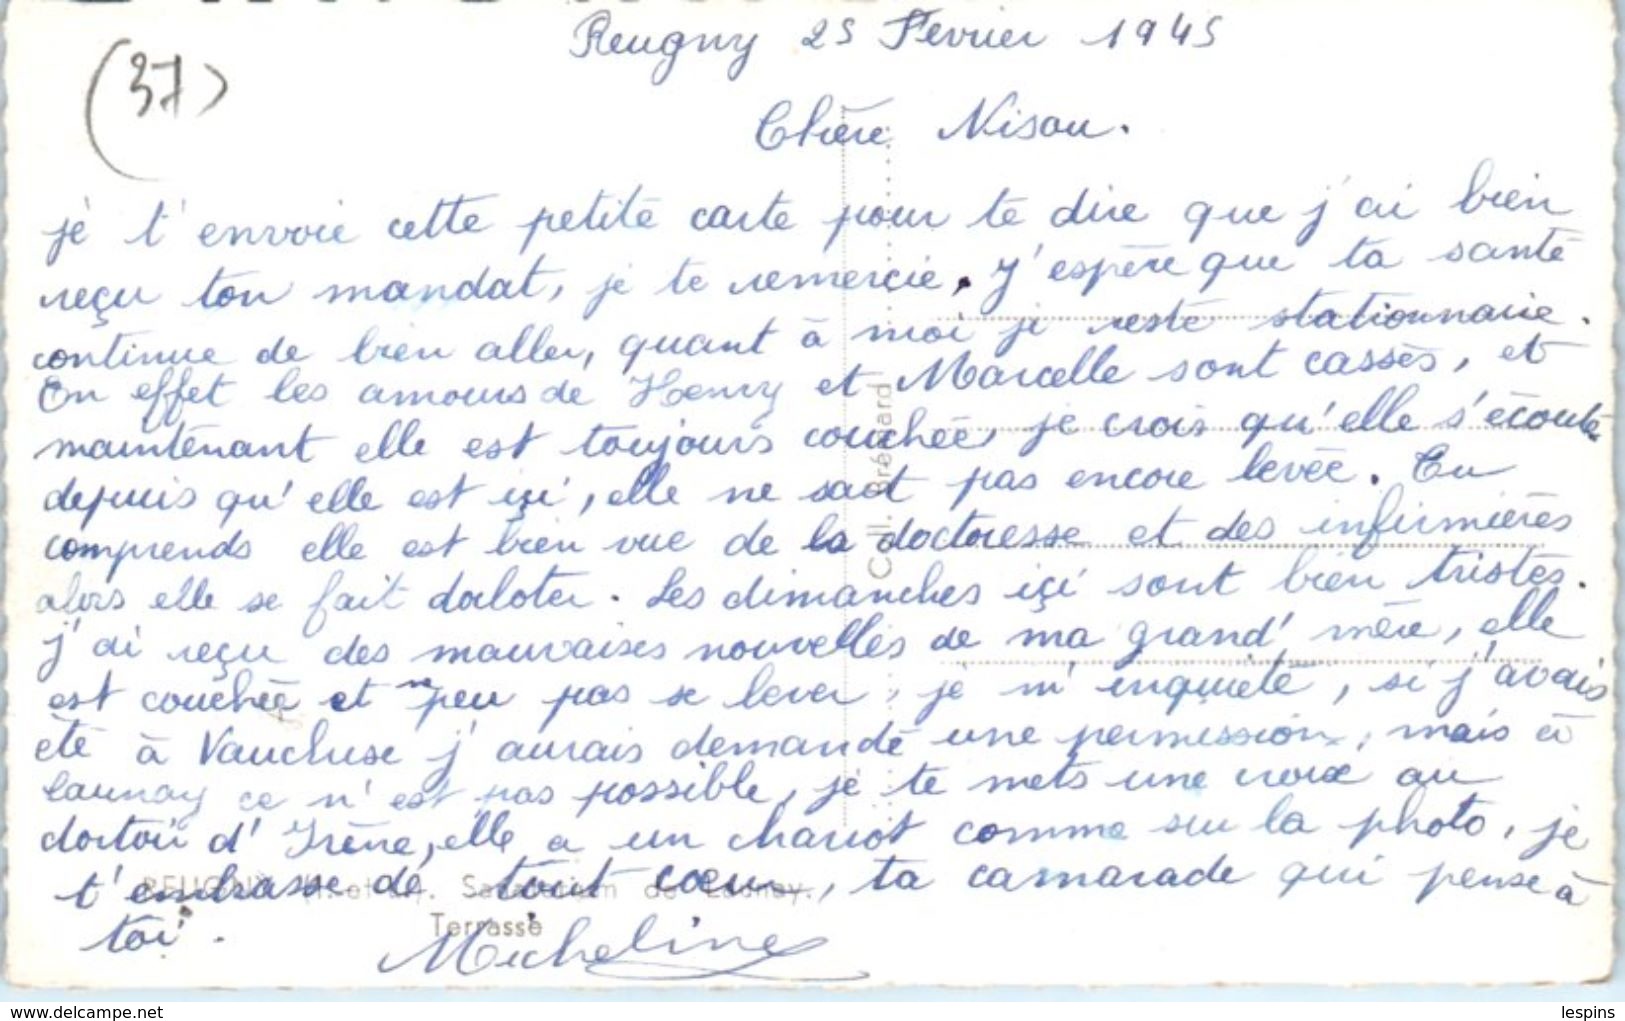 (37)
Reugny 25 Fevrier 1945
Chère Nisou.
je t'envoie cette petite carte pour te dire que j'ai bien
reçu ton mandat, je te remercie. J'espère que ta santé
continue de bien aller, quant à moi je reste stationnaire.
En effet les amours de Henry et Marcelle sont cassés, et
maintenant elle est toujours couchée, je crois qu'elle s'écoute
depuis qu'elle est içi, elle ne sait pas encore levée. Tu
comprends elle est bien vue de la doctoresse et des infirmières
alors elle se fait dorloter. Les dimanches içi sont bien tristes.
J'ai reçu des mauvaises nouvelles de ma grand'mère, elle
est couchée et ne peu pas se lever, je m'inquiète, si j'avais
été à Vaucluse j'aurais demandé une permission, mais à
Launay ce n'est pas possible, je te mets une croix au
dortoir d'Irène, elle a un chariot comme sur la photo, je
t'embrasse de tout cœur, ta camarade qui pense à
toi.
Micheline
REUGNY (I.-et-L.). Sanatorium de Launay.
Terrasse
Coll. Brégeard
delcampe.net
lespins